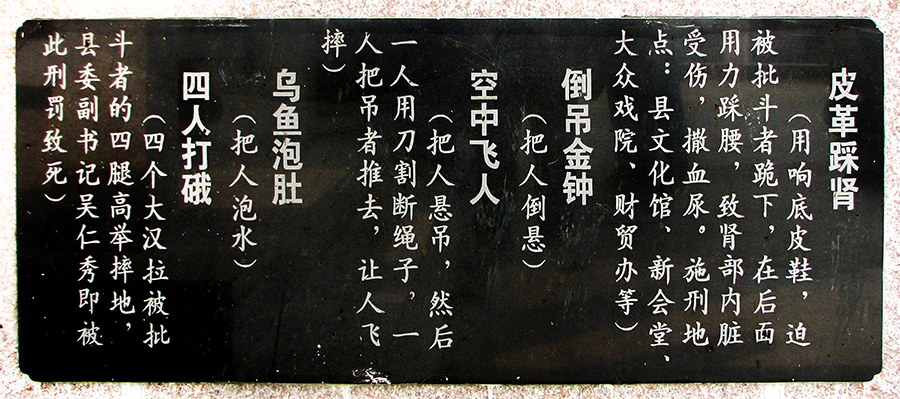 皮革踩肾
（用响底皮鞋，迫
被批斗者跪下，在后面
用力踩腰，致肾部内脏
受伤，撒血尿。施刑地
点：县文化馆、新会堂、
大众戏院、财贸办等）
倒吊金钟
（把人倒悬）
空中飞人
（把人悬吊，然后
一人用刀割断绳子，一
人把吊者推去，让人飞
摔）
乌鱼泡肚
（把人泡水）
四人打硪
（四个大汉拉被批
斗者的四腿高举摔地，
县委副书记吴仁秀即被
此刑罚致死）